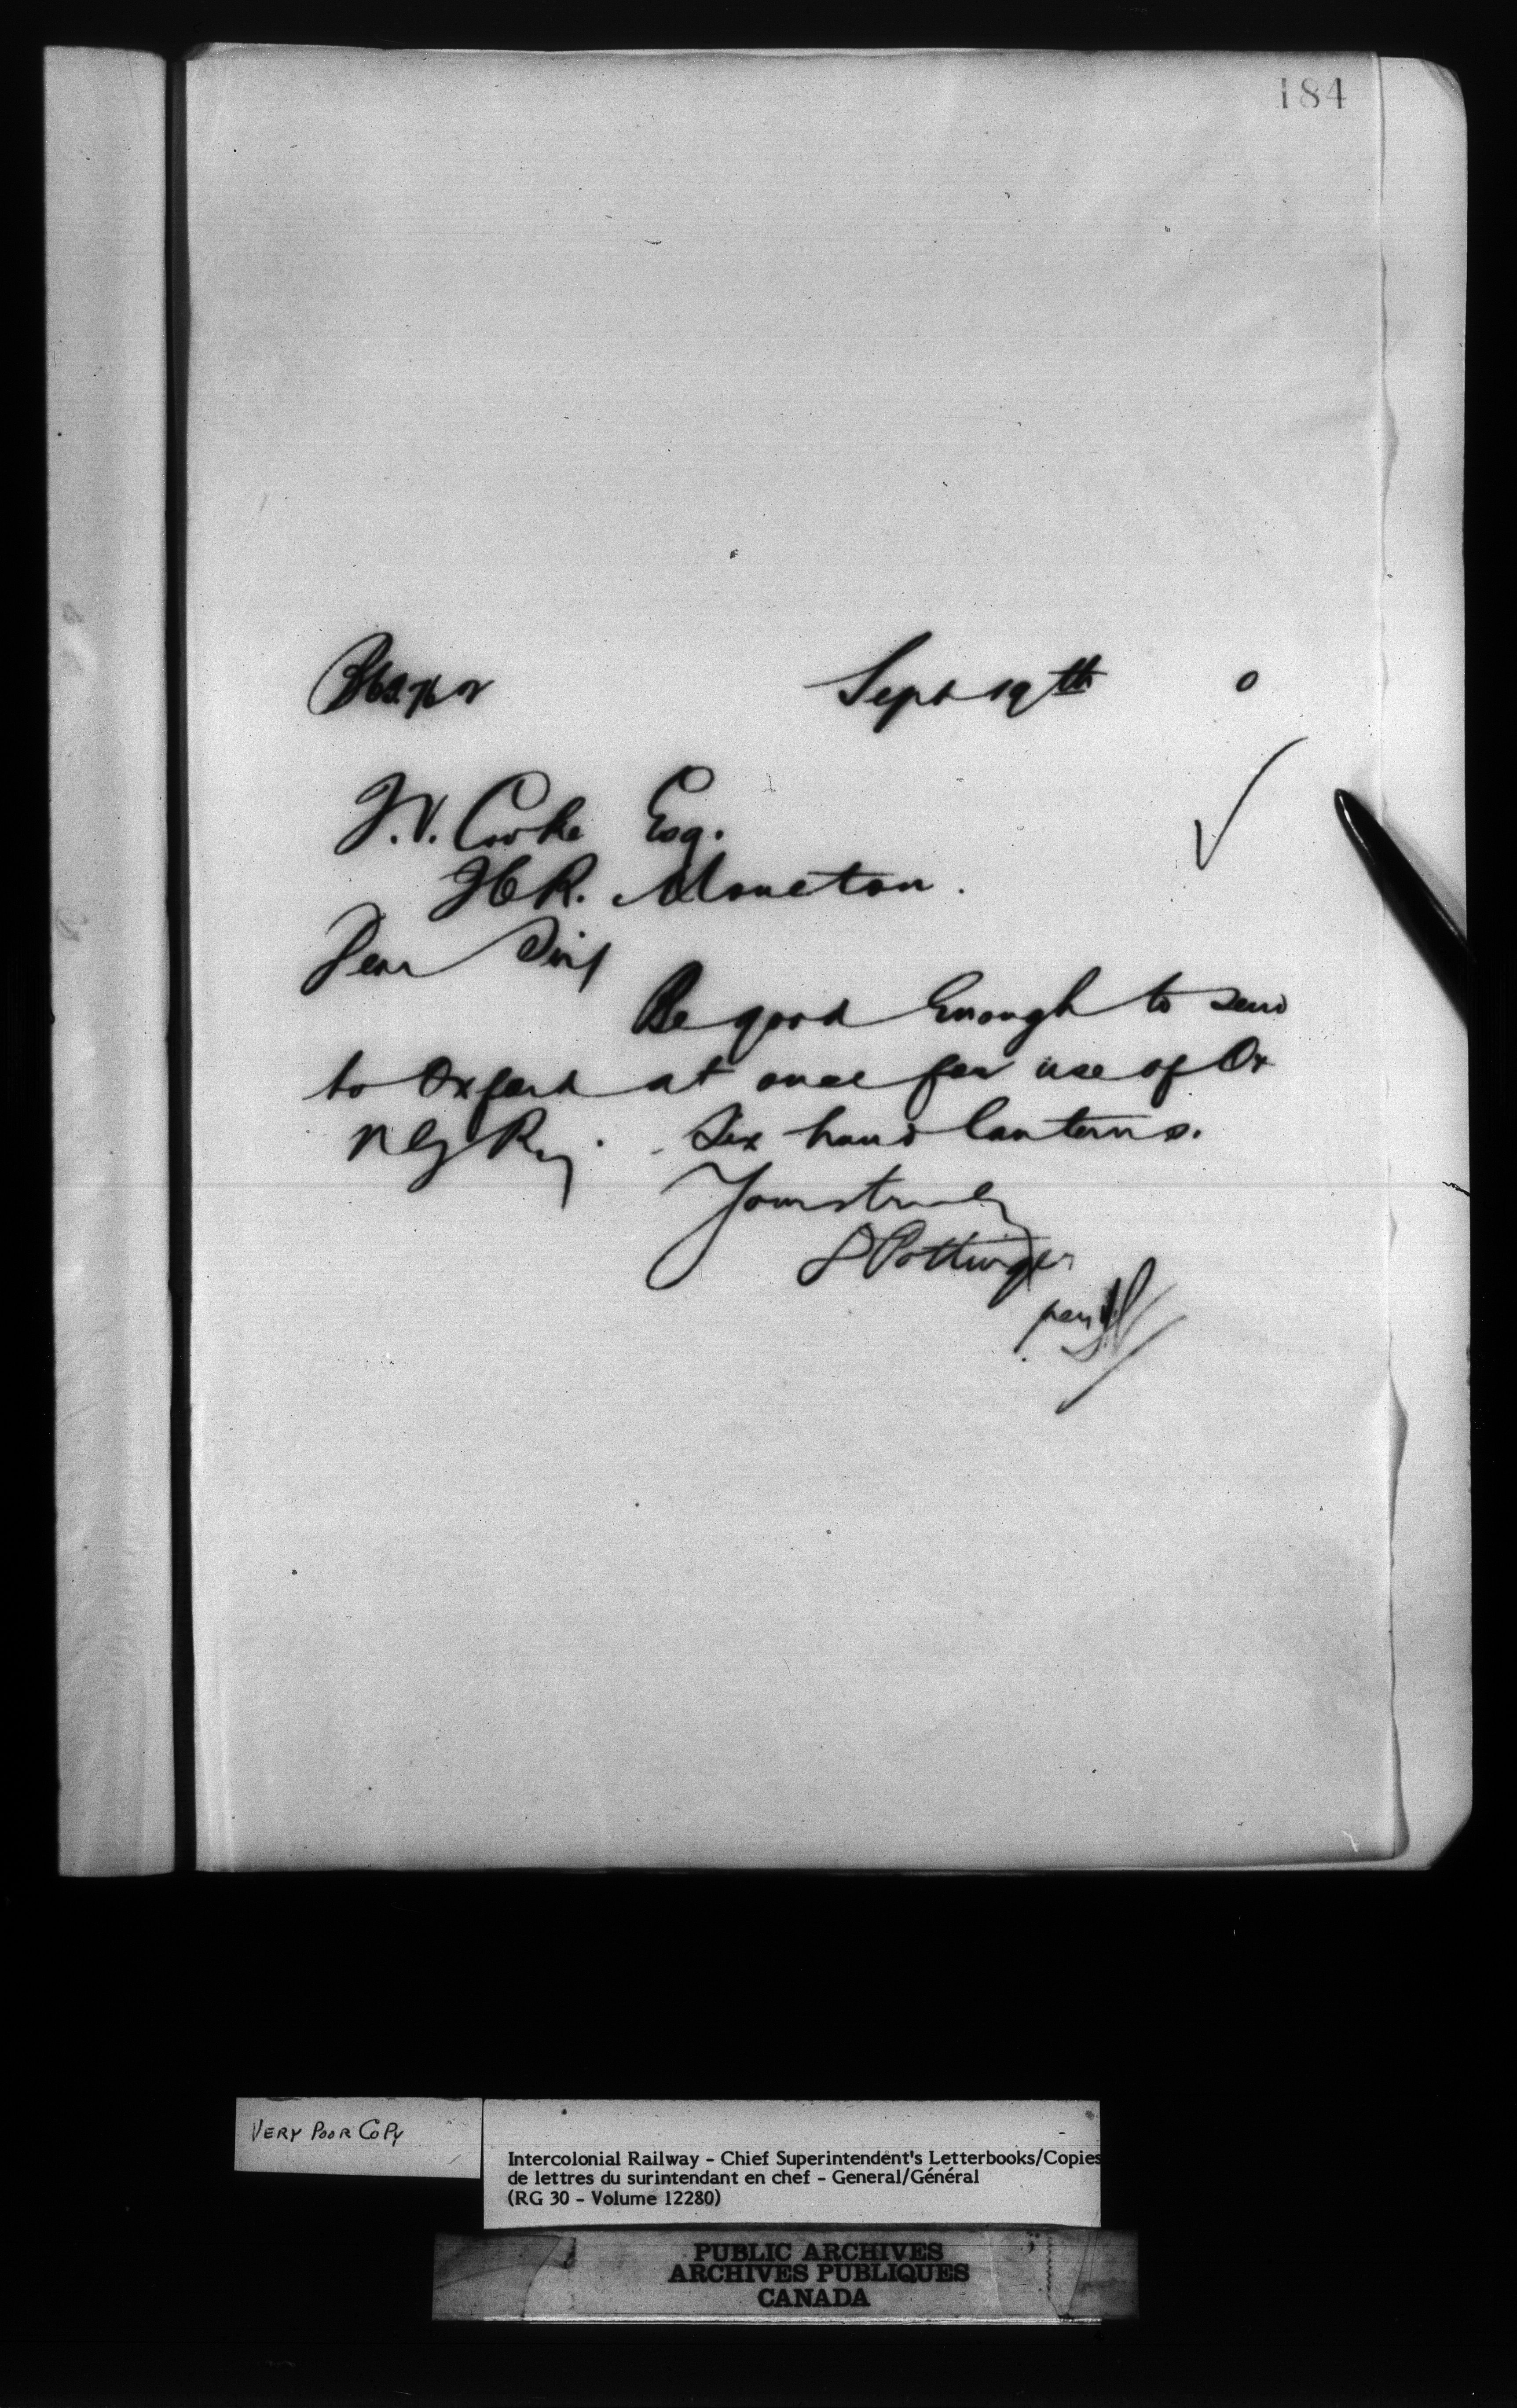 184
Sept 19th 0
T.V. Cooke Esq.
ICR. Moncton.
Dear Sir/
Be good Enough to send
to Oxford at once for use of Ox
NG Ry. Six hand lanterns.
Yours truly
D Pottinger
per
VERY POOR COPY
Intercolonial Railway - Chief Superintendent's Letterbooks/Copies
de lettres du surintendant en chef - General/Général
(RG 30 - Volume 12280)
PUBLIC ARCHIVES
ARCHIVES PUBLIQUES
CANADA